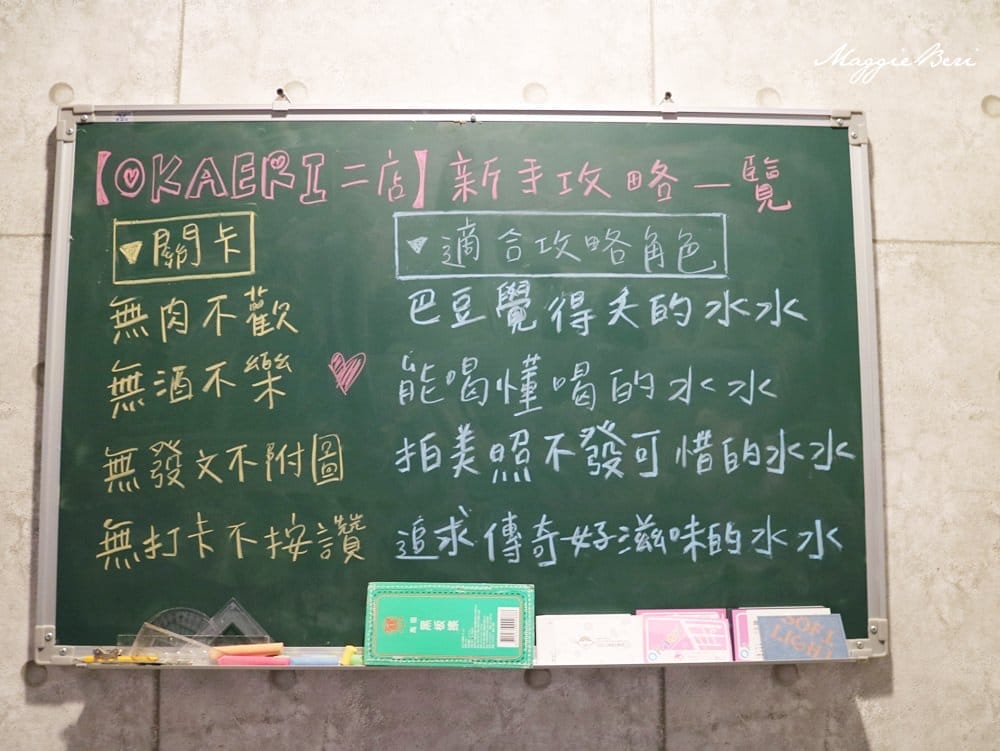 MaggieBeri
【OKAERI二店】新手攻略一覽
▼關卡 ▼適合攻略角色
無肉不歡 巴豆覺得夭的水水
無酒不樂 能喝懂喝的水水
無發文不附圖 拍美照不發可惜的水水
無打卡不按讚 追求傳奇好滋味的水水
黑板擦
SOFT
LIGHT